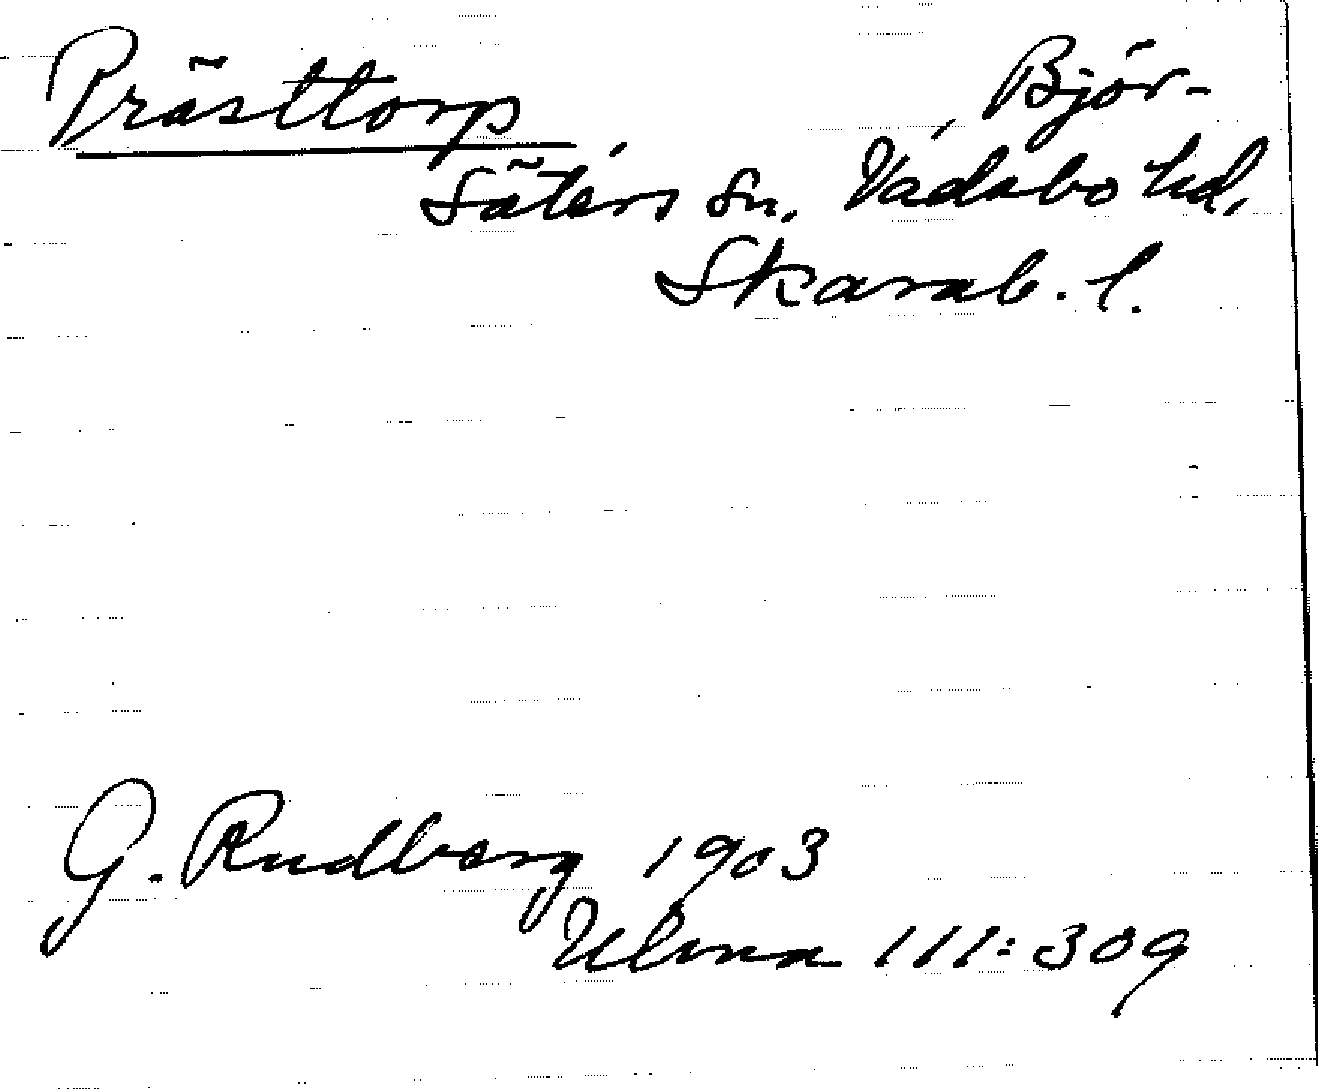 Prästtorp, Björ-
Säters sn. Vadsbo hd,
Skarab. l.
G. Rudberg 1903
Ulma 111:309